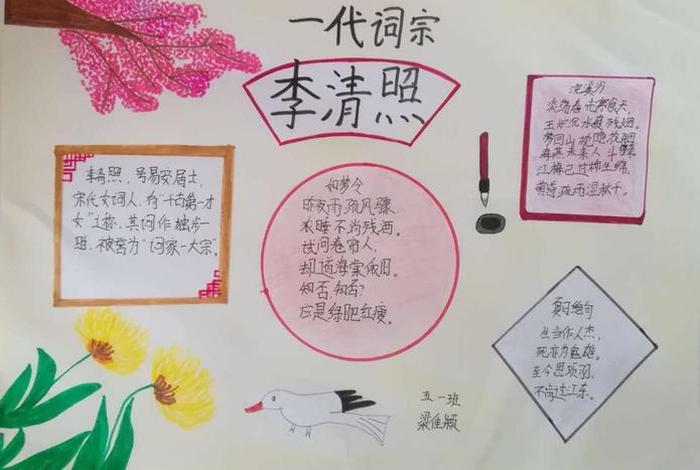 一代词宗
李清照
李清照，号易安居士，
宋代女词人，有“千古第一才
女”之称，其词作独步一
班，被誉为“词家一大宗”。
如梦令
昨夜雨疏风骤，
浓睡不消残酒。
试问卷帘人，
却道海棠依旧。
知否，知否？
应是绿肥红瘦。
浣溪沙
淡荡春光寒食天，
玉炉沉水袅残烟。
梦回山枕隐花钿。
海燕未来人斗草，
江梅已过柳生绵，
黄昏疏雨湿秋千。
夏日绝句
生当作人杰，
死亦为鬼雄。
至今思项羽，
不肯过江东。
五一班
梁佳颖